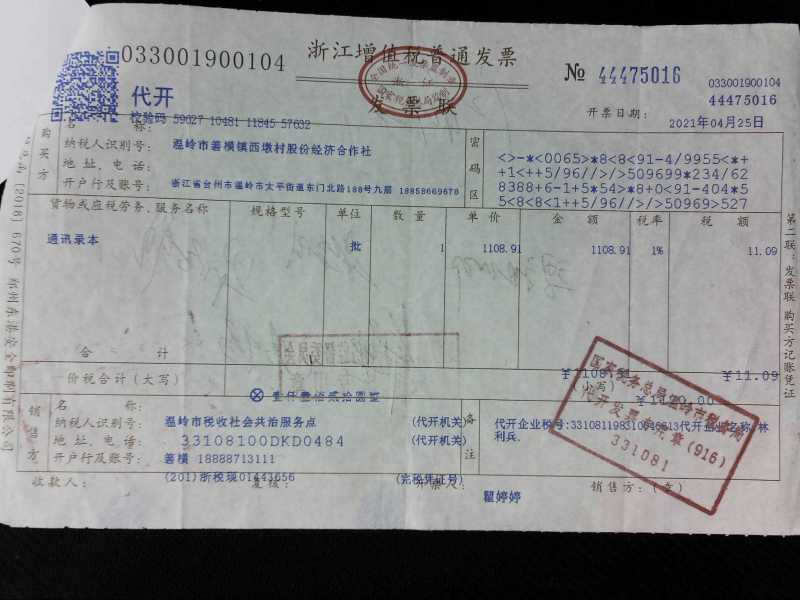 033001900104
浙江增值税普通发票
发票联
№ 44475016
033001900104
44475016
代开
校验码 59027 10481 11845 57632
开票日期：
2021年04月25日
购买方
名 称：
温岭市箬横镇西墩村股份经济合作社
纳税人识别号：
地址、电话：
浙江省台州市温岭市太平街道东门北路188号九层 18858669678
开户行及账号：
密码区
<>-*<0065>*8<8<91-4/9955<*+
+1<++5/96//>/>509699*234/62
8388+6-1+5*54>*8+0<91-404*5
5<8<8<1++5/96//>/>50969>527
货物或应税劳务、服务名称
规格型号
单位
数 量
单 价
金 额
税率
税 额
通讯录本
批
1
1108.91
1108.91
1%
11.09
合 计
￥1108.91
￥11.09
价税合计（大写）
ⓧ 壹仟壹佰贰拾圆整
（小写）
￥1120.00
销售方
名 称：
温岭市税收社会共治服务点
(代开机关)
纳税人识别号：
33108100DKD0484
(代开机关)
地址、电话：
箬横 18888713111
开户行及账号：
(201)浙税现01443656
(完税凭证号)
备注
代开企业名称：林
利兵.
国家税务总局温岭市税务局
代开发票专用章(916)
331081
收款人：
复核：
开票人：
瞿婷婷
销售方：(章)
第二联：发票联 购买方记账凭证